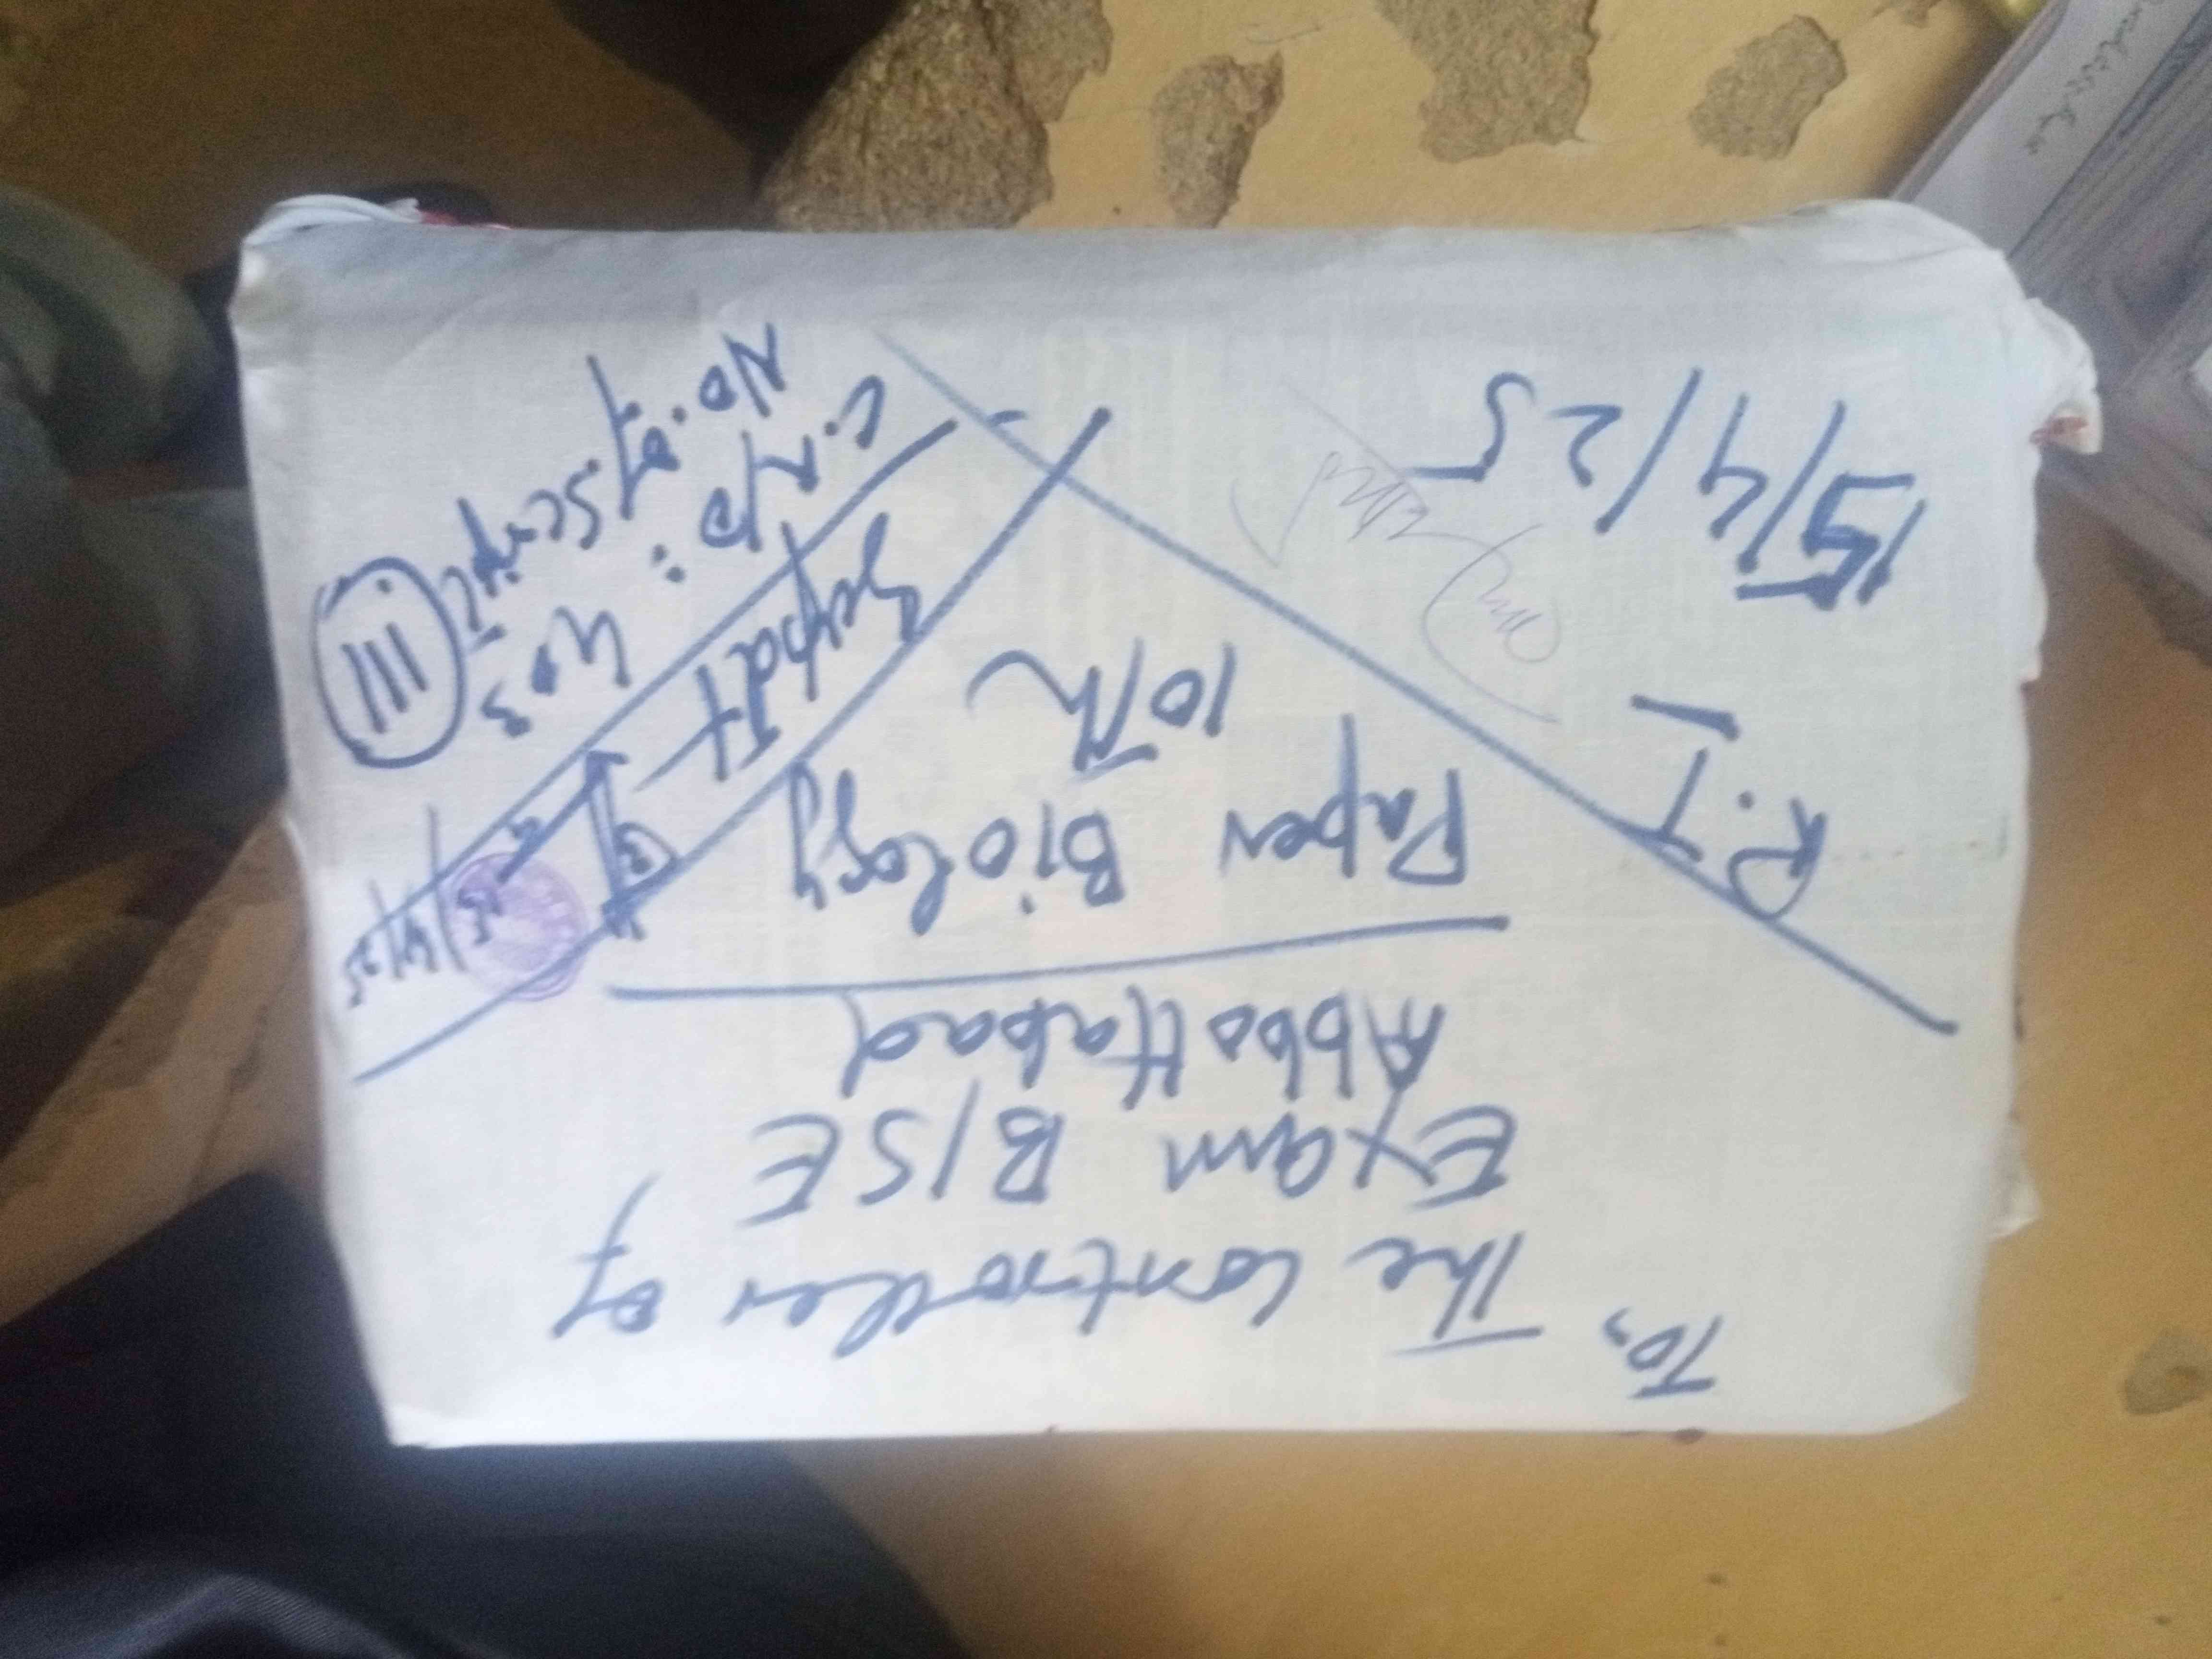 To,
The Controller of
Exam BISE
Abbottabad
Paper Biology
10Th
R.I
15/4/25
Supdt
C.No: 403
No. of Script
111
15/4/25